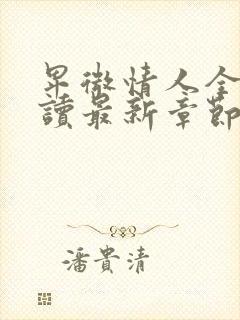 卑微情人全
讀最新章節
潘貴清